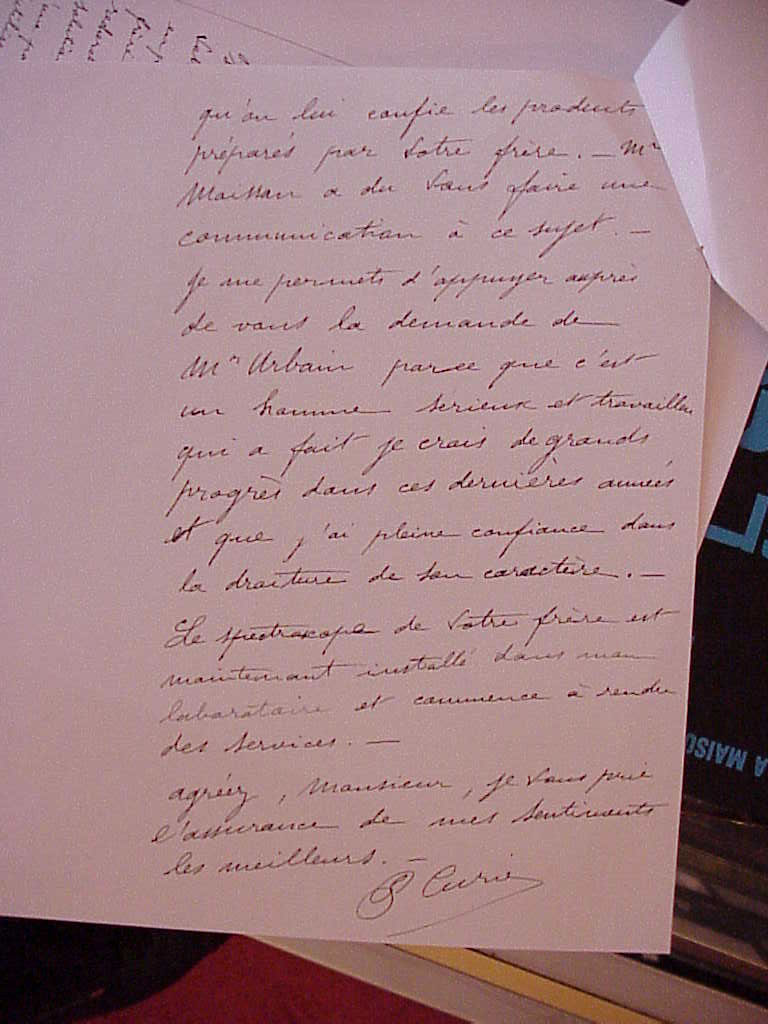 qu'on lui confie les produits
préparés par votre frère. — Mr
Moissan a du vous faire une
communication à ce sujet. —
Je me permets d'appuyer auprès
de vous la demande de
Mr Urbain parce que c'est
un homme sérieux et travailleur
qui a fait je crois de grands
progrès dans ces dernières années
et que j'ai pleine confiance dans
la droiture de son caractère. —
Le spectroscope de votre frère est
maintenant installé dans mon
laboratoire et commence à rendre
des services. —
agréez, Monsieur, je vous prie
l'assurance de mes sentiments
les meilleurs. —
P Curie
A MAISO